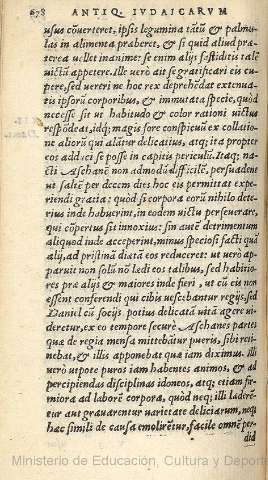 678 ANTIQ. IVDAICARVM
usus cōuerteret, ipsis legumina tātū & palmu
las in alimenta praberet, & si quid aliud præ
terea uellet inanime: se enim alijs fastiditis tale
uictū appetere. Ille uerò ait se gratificari eis cu
pere, sed uereri ne hoc rex deprehēdat extenua
tis ipsorū corporibus, & immutata specie, quòd
necesse sit ut habitudo & color rationi uictus
respōdeat, idq; magis fore conspicuū ex collatio
ne aliorū qui alātur delicatius, atq; ita propter
eos adduci se posse in capitis periculū. Itaq; na-
cti Aschanē non admodū difficilē, persuadent
ut saltē per decem dies hoc eis permittat expe-
riendi gratia: quòd si corpora eorū nihilo dete
rius inde habuerint, in eodem uictu perseuerare,
qui cōpertus sit innoxius: sin autē detrimentum
aliquod inde acceperint, minus speciosi facti quā
alij, ad pristinā diæta eos reduceret: ut uero ap
paruit non solū nō lædi eos talibus, sed habitio
res præ alys & maiores inde fieri, ut cū eis non
essent conferendi qui cibis uescebantur regijs, sed
Daniel cū socijs potius delicatā uitā agere ui-
deretur, ex eo tempore securè Aschanes partes
quæ de regia mensa mittebātur pueris, sibi reti-
nebat, & illis apponebat quæ iam diximus. Illi
uerò utpote puros iam habentes animos, & ad
percipiendas disciplinas idoneos, atq; etiam fir-
miora ad laborē corpora, quod neq; illi læderē
tur aut grauarentur uarietate deliciarum, neq;
hæc simili de causa emolirētur, facile omnē per-
did
Ministerio de Educación, Cultura y Deport